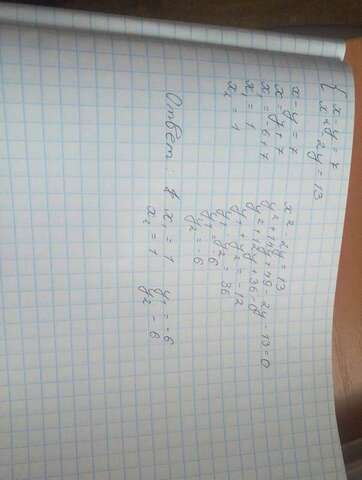 { x - y = 7
x² - 2y = 13
x - y = 7
x = y + 7
x = -6 + 7
x₁ = 1
x₂ = 1
x² - 2y = 13
y² + 14y + 49 - 2y - 13 = 0
y² + 12y + 36 = 0
y₁ + y₂ = -12
y₁ y₂ = 36
y₁ = -6
y₂ = -6
Ответ: x₁ = 1 y₁ = -6
x₂ = 1 y₂ = -6